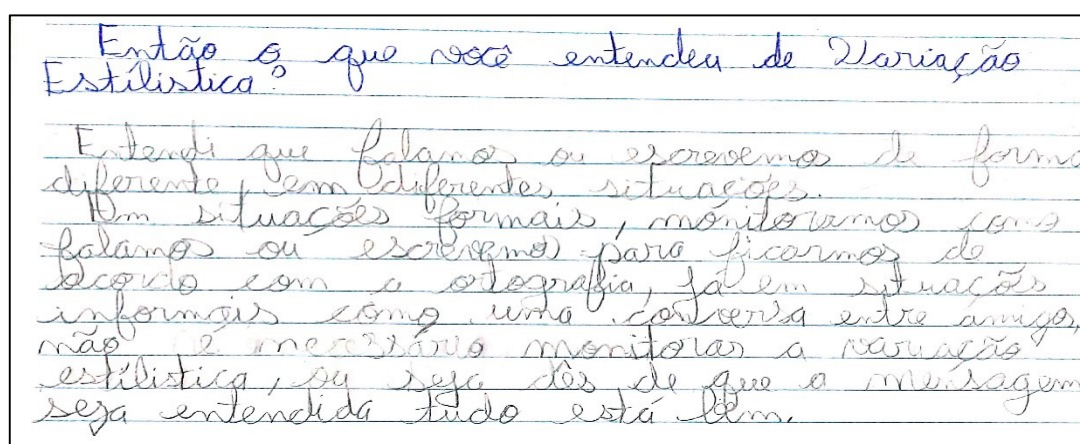 Então o que você entendeu de Variação
Estílistica?
Entendi que falamos ou escrevemos de forma
diferente, em diferentes situações.
Em situações formais, monitoramos como
falamos ou escrevemos para ficarmos de
acordo com a ortografia, já em situações
informais como uma conversa entre amigos,
não é necessário monitorar a variação
estílistica, ou seja dês de que a mensagem
seja entendida tudo está bem.